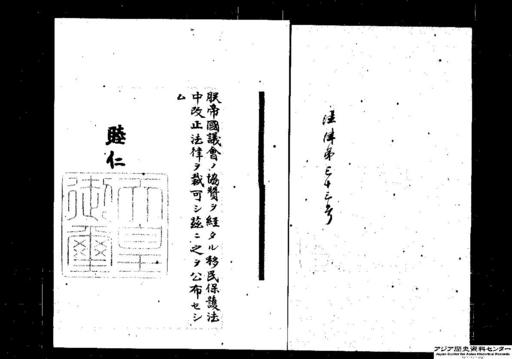 法律第三十三号
朕帝國議會ノ協贊ヲ經タル移民保護法
中改正法律ヲ裁可シ玆ニ之ヲ公布セシ
ム
睦仁
天皇
御璽
アジア歴史資料センター
Japan Center for Asian Historical Records